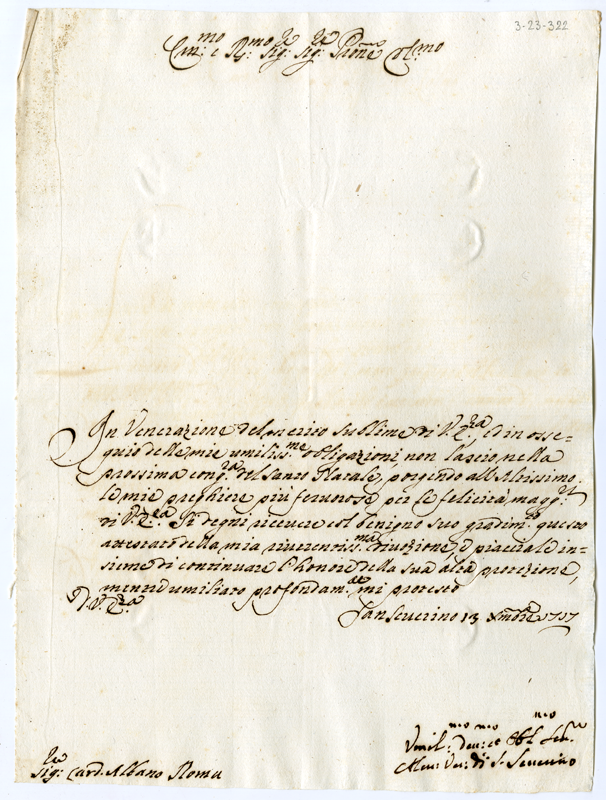 3-23-322
Em:mo e R:mo Sig:re Sig:re Pron̄e Col:mo
In Venerazione del merito sublime di V. E:za, ed in osse=
quio delle mie umiliss:me obligazioni, non lascio, nella
prossima cong:ra del Santo Natale, porgendo all'Altissimo
le mie preghiere più fervorose per le felicità magg:ri
di V. E:za. Si degni ricevere col benigno suo gradim:to questo
attestato della mia riverentiss:ma divozione, e piacciale in=
sieme di continuare l'honore della sua alta protezione,
mentre umiliato profondam:te mi protesto
D. V. E:za
San Severino 13 Xmbre 1717
Umil:mo Dev:mo et Obl:mo Ser:re
Ves: di S. Severino
Sig:re Card. Albano Roma